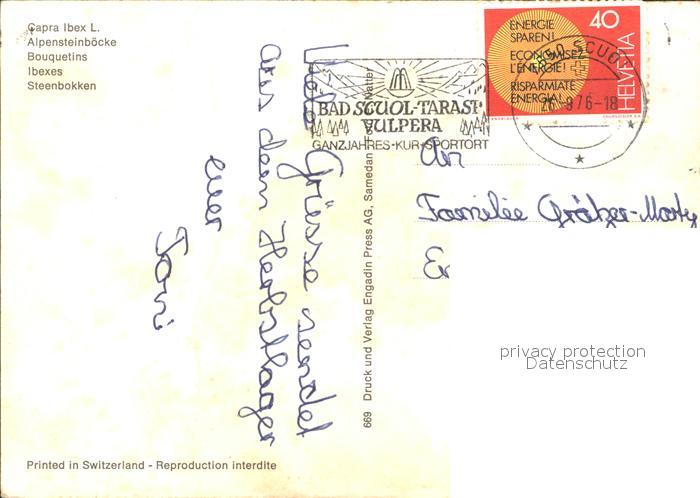 Capra Ibex L.
Alpensteinböcke
Bouquetins
Ibexes
Steenbokken
ENERGIE
SPAREN!
ECONOMISEZ
L'ENERGIE!
RISPARMIATE
ENERGIA!
40
HELVETIA
BAD SCUOL-TARASP
VULPERA
GANZJAHRES-KUR-SPORTORT
SCUOL
9.76-18
Viele Grüsse sendet
aus dem Herbstlager
euer
Toni
669 Druck und Verlag Engadin Press AG, Samedan
An
Familie Gräber-Marty
privacy protection
Datenschutz
Printed in Switzerland - Reproduction interdite